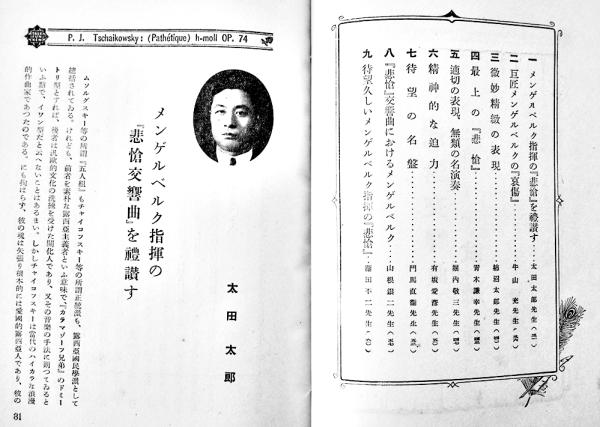 一 メンゲルベルク指揮の『悲愴』を禮讃す……太田太郎先生
二 巨匠メンゲルベルクの『哀傷』……牛山充先生
三 微妙精緻の表現……柿沼太郎先生
四 最上の『悲愴』……青木謙幸先生
五 適切の表現、無類の名演奏……堀内敬三先生
六 精神的な迫力……有坂愛彦先生
七 待望の名盤……門馬直衞先生
八 『悲愴』交響曲におけるメンゲルベルク……山根銀二先生
九 待望久しいメンゲルベルク指揮の『悲愴』……藤田不二先生
P. J. Tschaikowsky: (Pathétique) h-moll OP. 74
メンゲルベルク指揮の
『悲愴交響曲』を禮讃す
太田太郎
ムソルグスキー等の所謂『五人組』もチャイコフスキー等の所謂正統派も、露西亞國民學派として
總括されてゐる。けれども、前者を素朴な露西亞主義者といふ意味で、『カラマゾーフ兄弟』のドミー
トリ型とすれば、後者は西歐的文化の洗練を受けた開化人であり、又その音樂の手法に則つてゐると
いふ點で、イワン型だと云へないことはあるまい。しかしチャイコフスキーは當代のハイカラな浪漫
的作曲家であつたのである。にも拘はらず、彼の魂は矢張り根本的には愛國的露西亞人であり、彼の
31